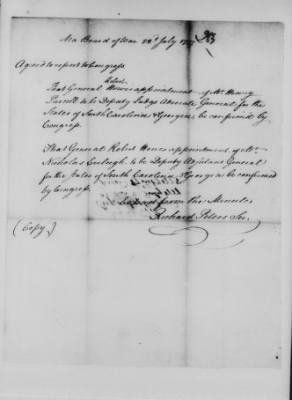 At a Board of War 28th July 1777
Agreed to report to Congress
Robert
That General Howes appointment of Mr. Henry
Purcell to be Deputy Judge Advocate General for the
States of South Carolina & Georgia, be confirmed by
Congress.
That General Robert Howes appointment of Mr.
Nicholas Eveleigh, to be Deputy Adjutant General
for the States of South Carolina & Georgia be confirmed
by Congress.
Extract from the Minutes
Richard Peters Secy.
(Copy)